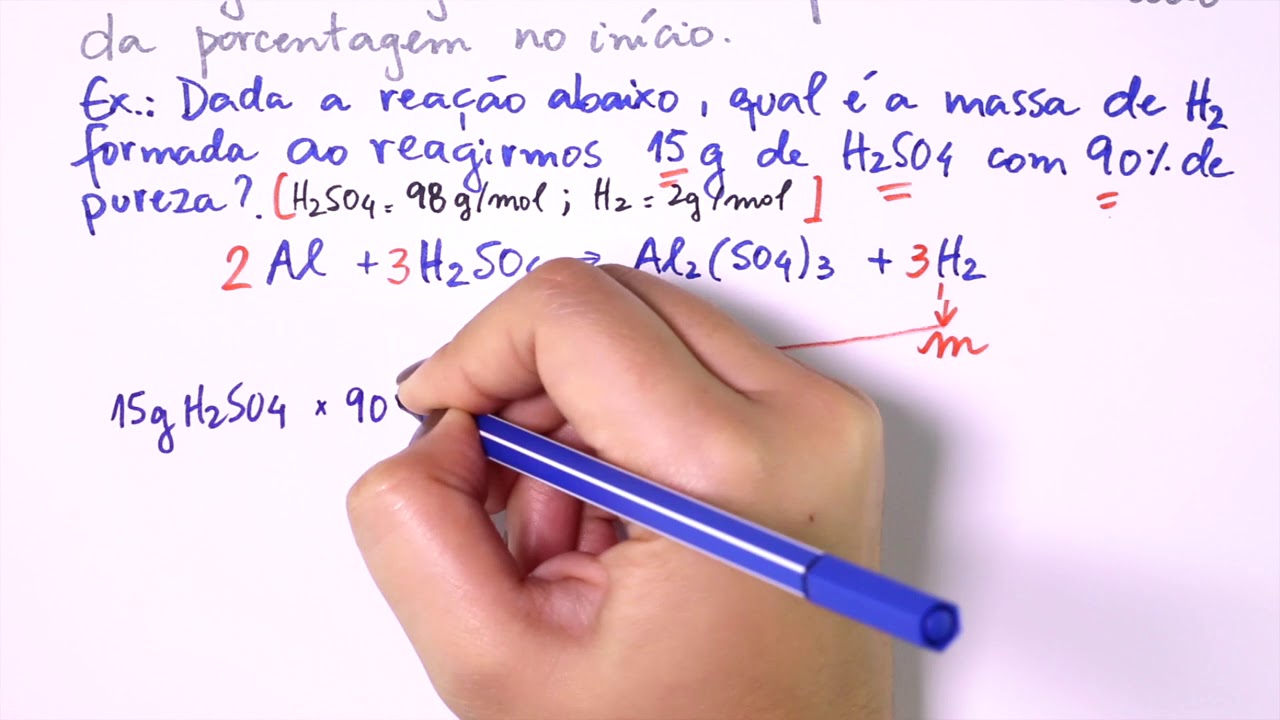 da porcentagem no início.
Ex.: Dada a reação abaixo, qual é a massa de H₂
formada ao reagirmos 15g de H₂SO₄ com 90% de
pureza? [H₂SO₄ = 98 g/mol ; H₂ = 2g/mol]
2 Al + 3 H₂SO₄ → Al₂(SO₄)₃ + 3 H₂
m
15g H₂SO₄ × 90